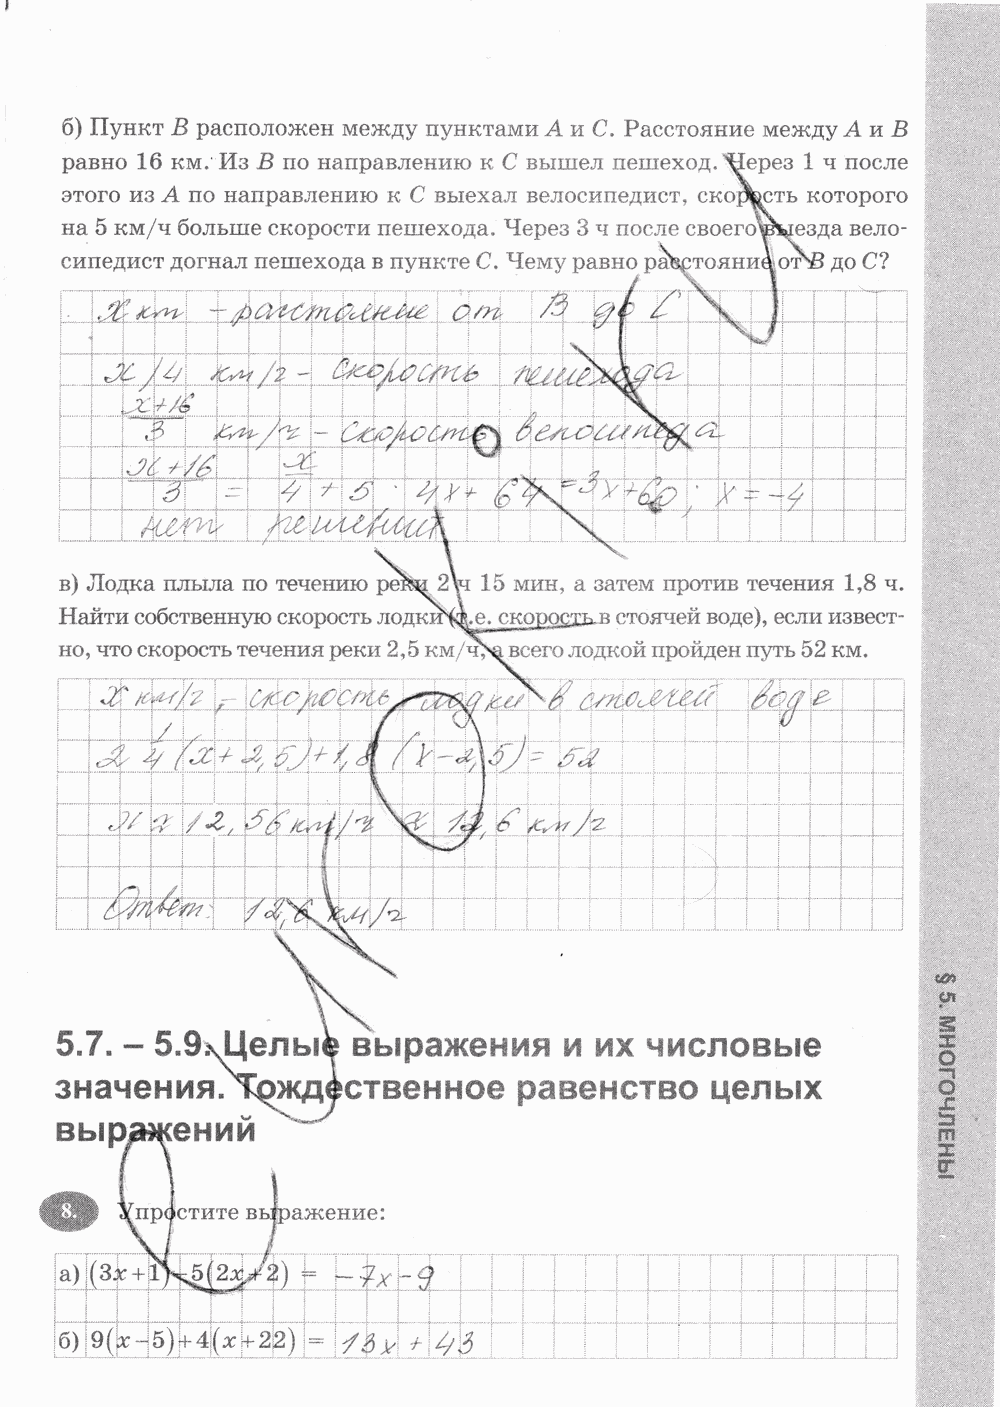 б) Пункт B расположен между пунктами A и C. Расстояние между A и B
равно 16 км. Из B по направлению к C вышел пешеход. Через 1 ч после
этого из A по направлению к C выехал велосипедист, скорость которого
на 5 км/ч больше скорости пешехода. Через 3 ч после своего выезда вело-
сипедист догнал пешехода в пункте C. Чему равно расстояние от B до C?
x км – расстояние от B до C
x/4 км/ч – скорость пешехода
x+16/3 км/ч – скорость велосипеда
x+16/3 = x/4 + 5 · 4x + 64 = 3x+60; x = -4
нет решений
в) Лодка плыла по течению реки 2 ч 15 мин, а затем против течения 1,8 ч.
Найти собственную скорость лодки (т.е. скорость в стоячей воде), если извест-
но, что скорость течения реки 2,5 км/ч, а всего лодкой пройден путь 52 км.
x км/ч – скорость лодки в стоячей воде
2 1/4 (x+2,5)+1,8 (x-2,5) = 52
x ≈ 12,56 км/ч ≈ 12,6 км/ч
Ответ: 12,6 км/ч
5.7. – 5.9. Целые выражения и их числовые
значения. Тождественное равенство целых
выражений
8. Упростите выражение:
а) (3x+1)–5(2x+2) = -7x-9
б) 9(x–5)+4(x+22) = 13x + 43
§ 5. МНОГОЧЛЕНЫ